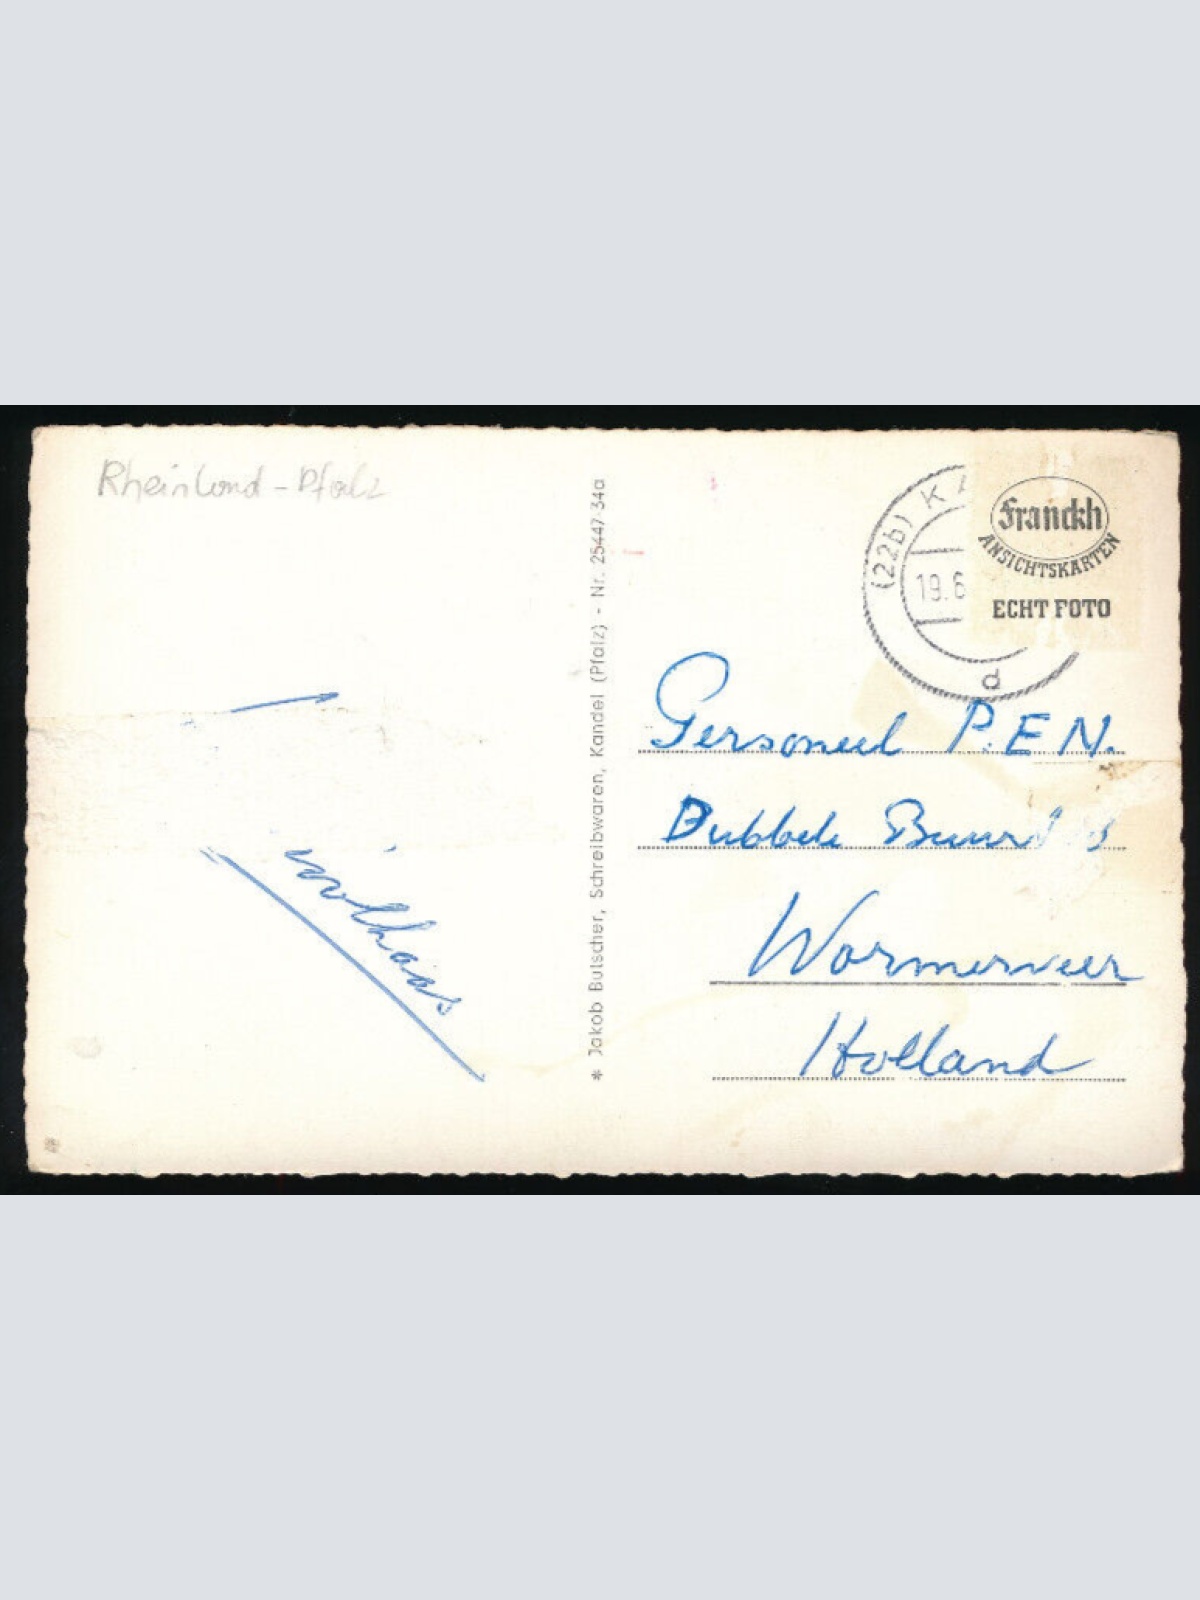 Rheinland-Pfalz
* Jakob Butscher, Schreibwaren, Kandel (Pfalz) - Nr. 25447 34a
(22b) KA
19.6
d
Franckh
ANSICHTSKARTEN
ECHT FOTO
Personeel P.E.N.
Dubbele Buurt
Wormerveer
Holland